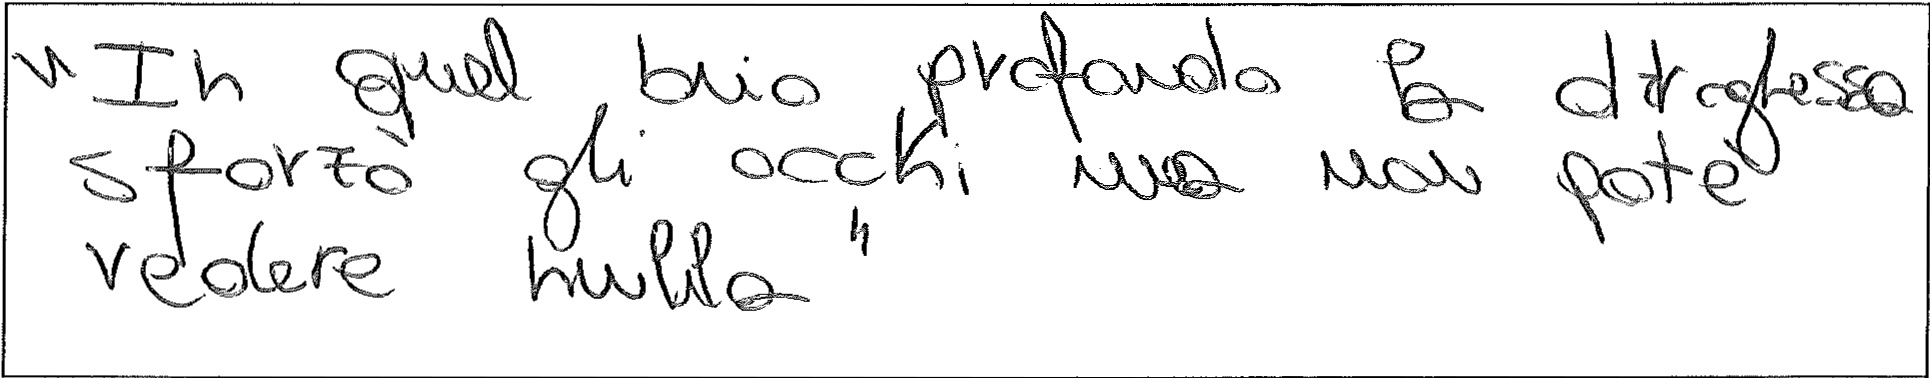 "In quel buio profondo la draghessa
sforzò gli occhi ma non potè
vedere nulla"